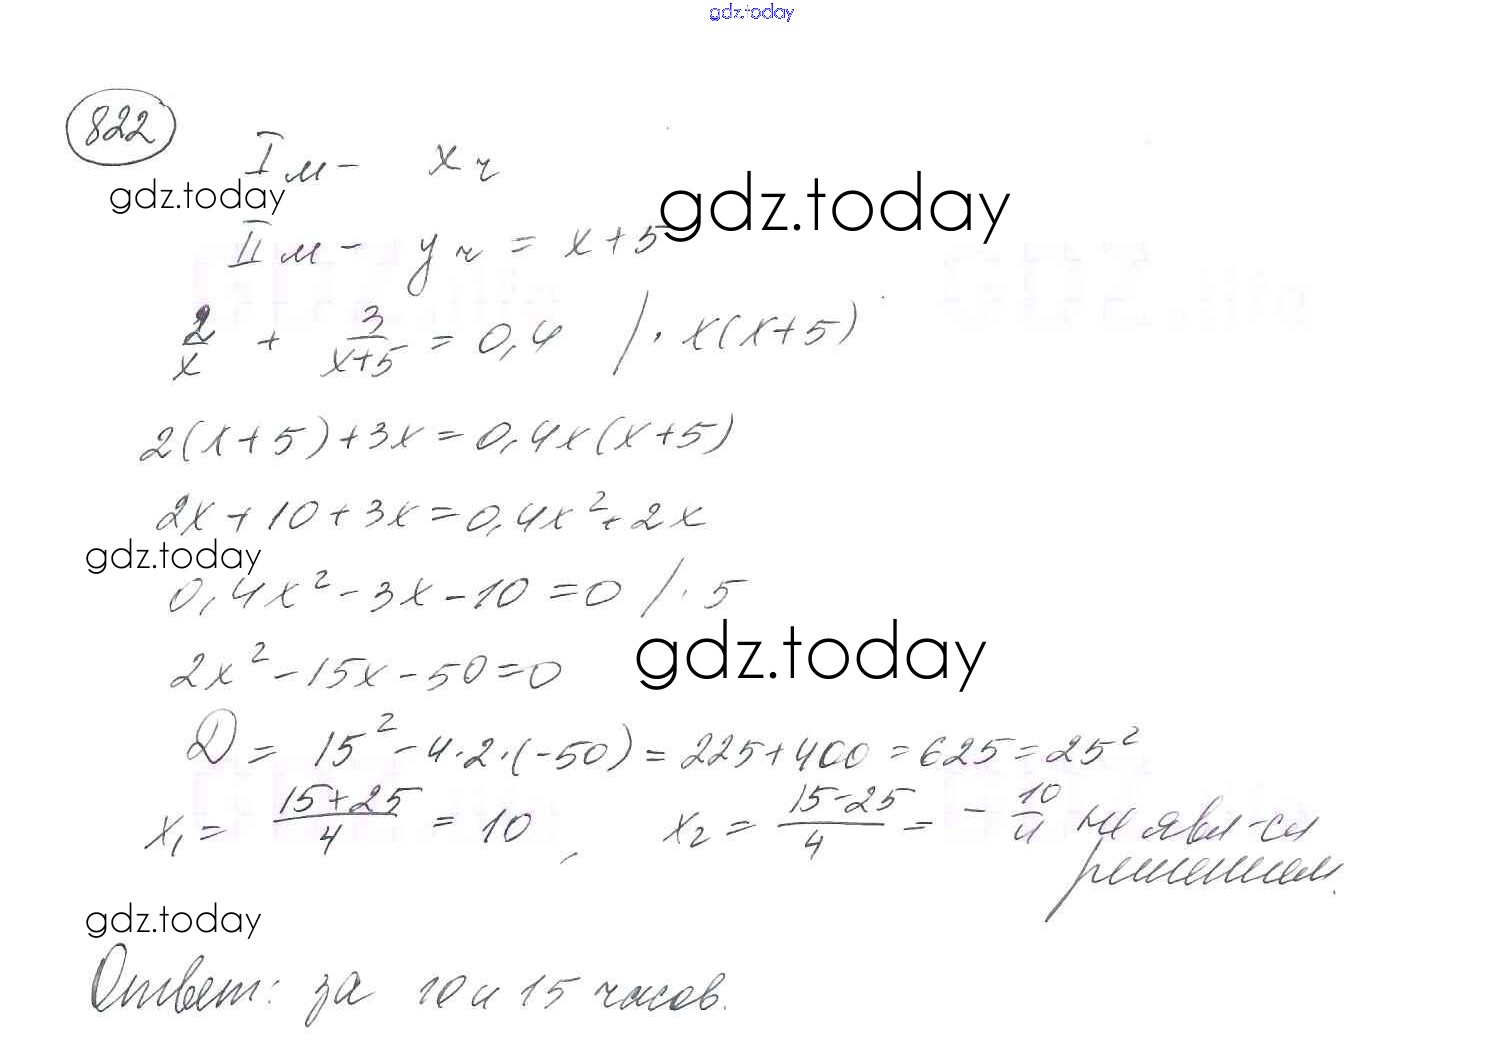 gdz.today
822
I м - x ч
gdz.today
gdz.today
II м - y ч = x+5
2/x + 3/(x+5) = 0,4 / · x(x+5)
2(x+5)+3x=0,4x(x+5)
2x+10+3x=0,4x²+2x
gdz.today
0,4x²-3x-10=0 /· 5
gdz.today
2x²-15x-50=0
D = 15²-4·2·(-50)=225+400=625=25²
x₁ = (15+25)/4 = 10, x₂ = (15-25)/4 = - 10/4 не явл-ся
решением.
gdz.today
Ответ: за 10 и 15 часов.